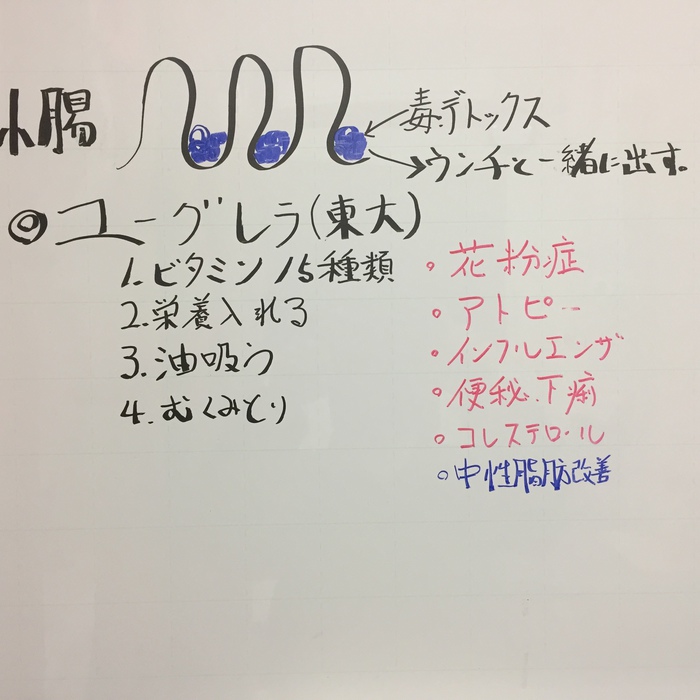 小腸
毒デトックス
ウンチと一緒に出す。
◎ユーグレラ(東大)
1.ビタミン15種類
2.栄養入れる
3.油吸う
4.むくみとり
○花粉症
○アトピー
○インフルエンザ
○便秘、下痢
○コレステロール
○中性脂肪改善